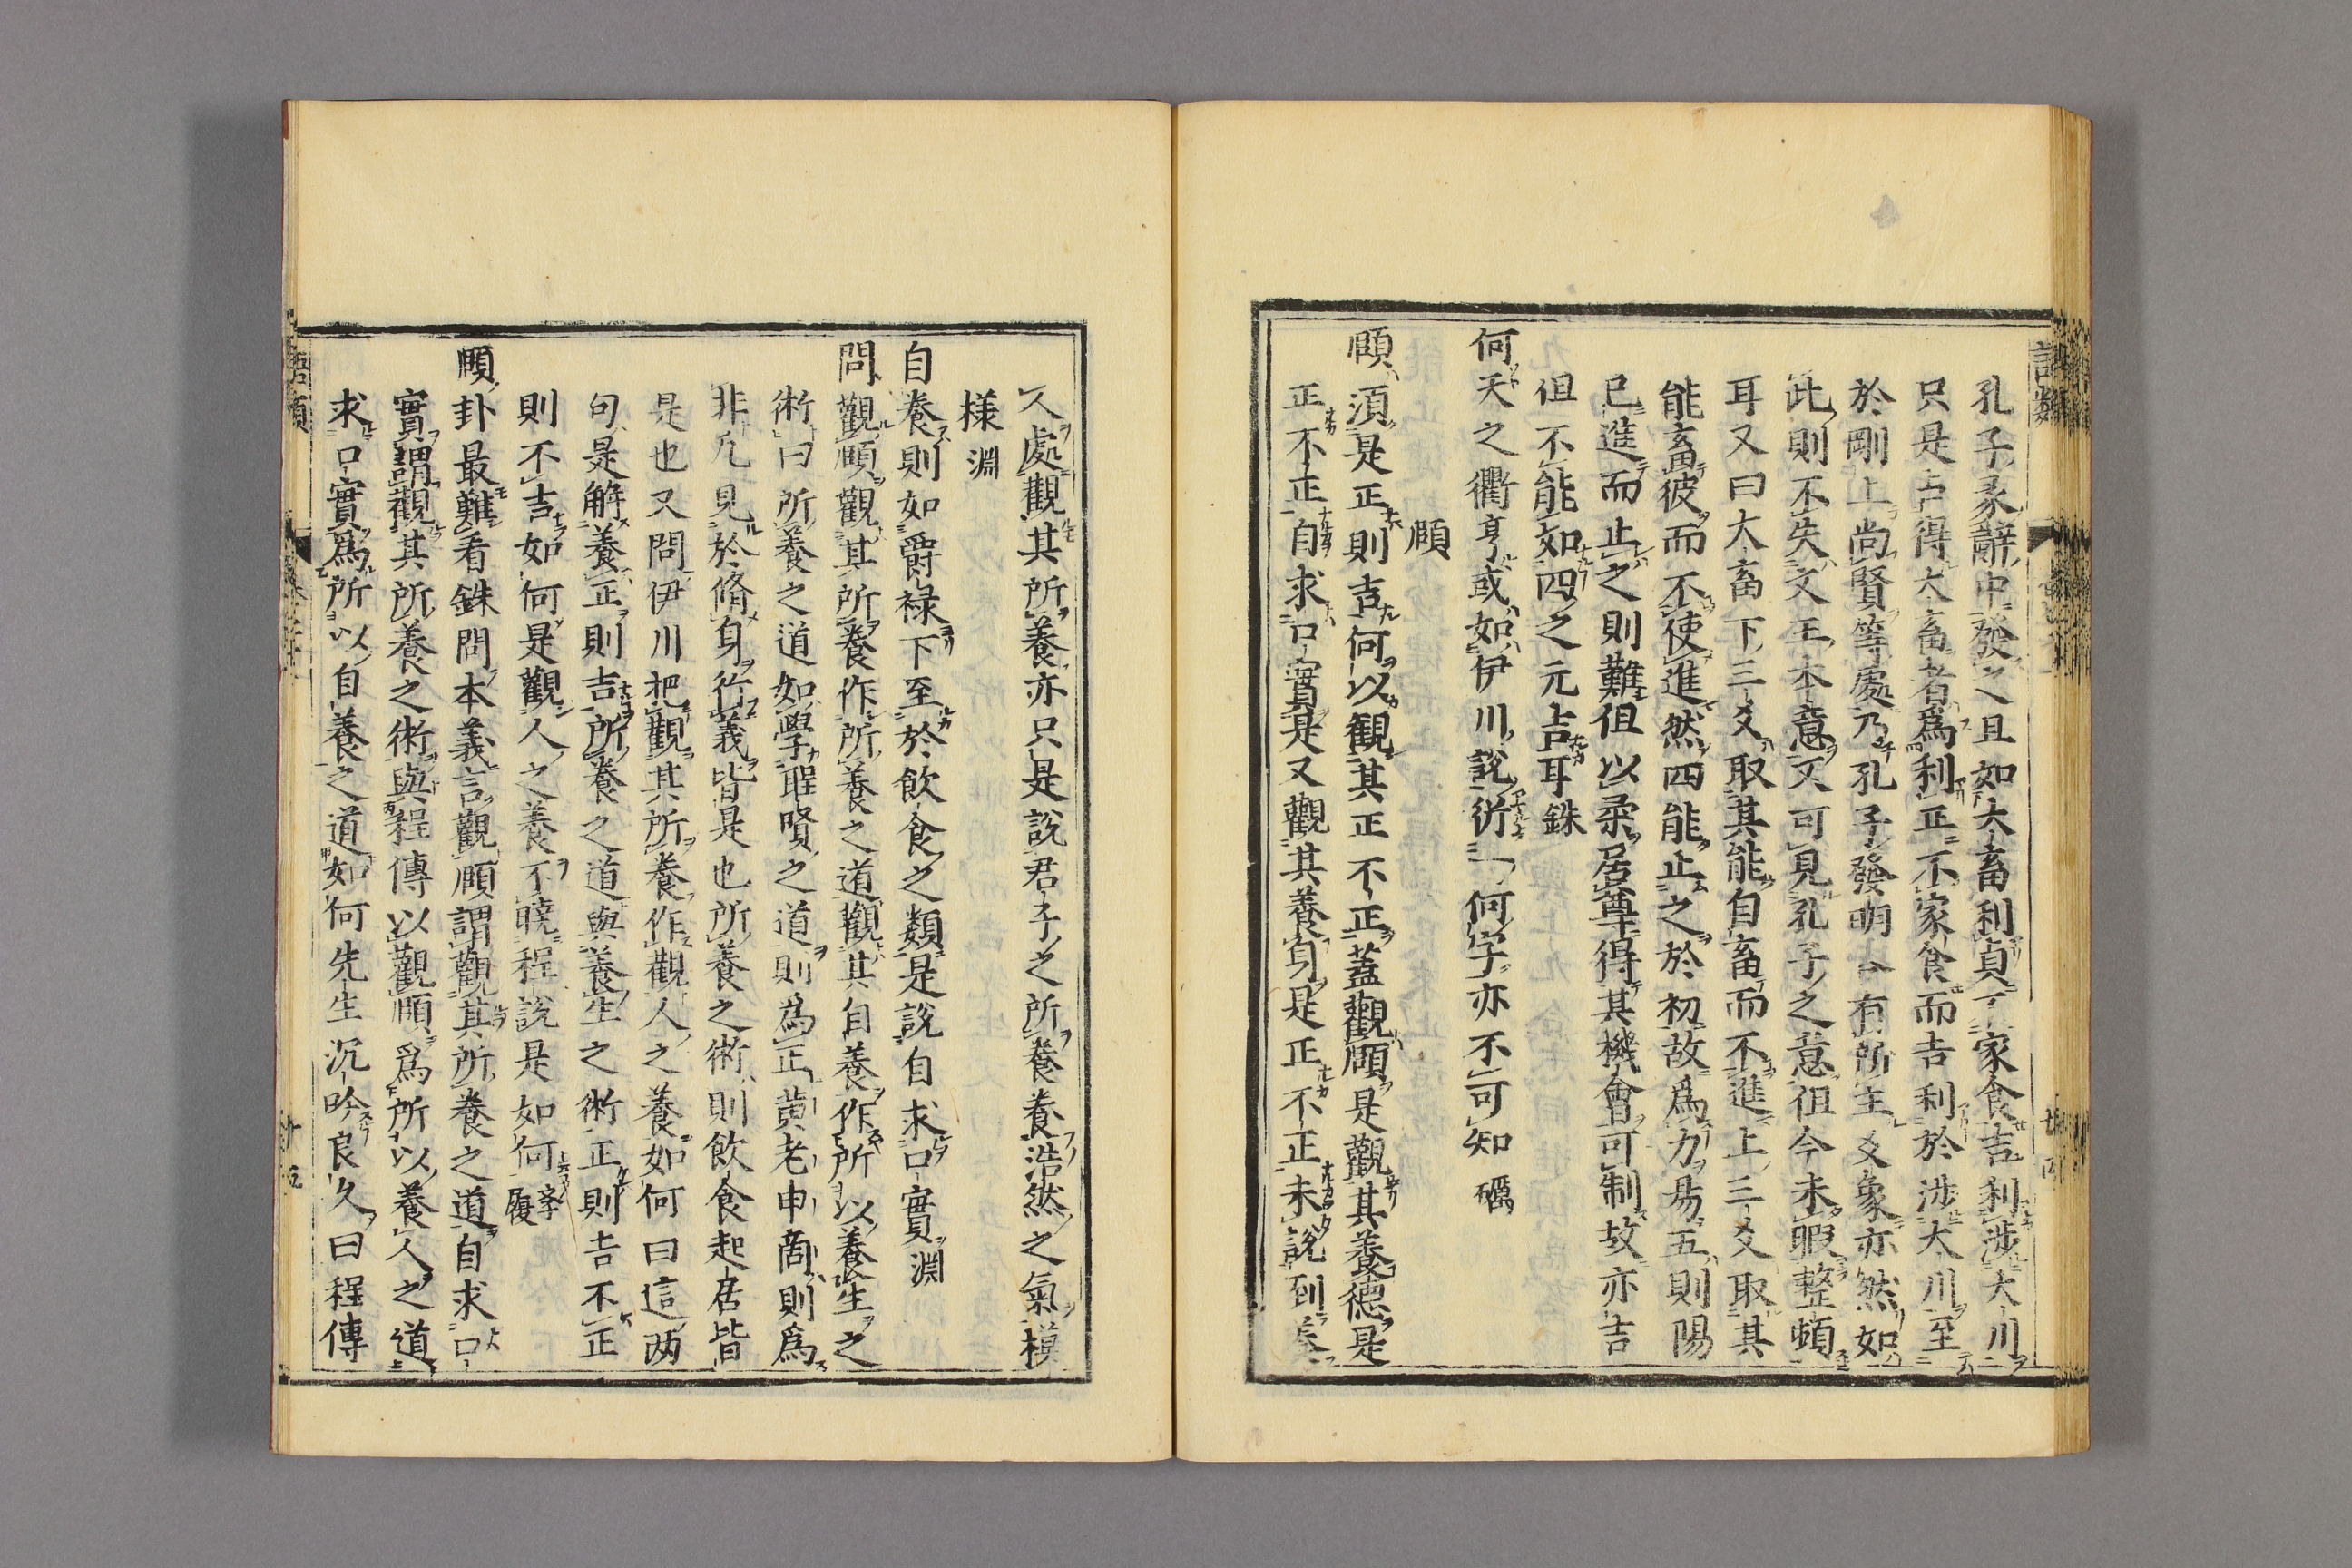 孔子彖辭中發之且如大畜利貞不家食吉利渉大川
只是占得大畜者爲利正不家食而吉利於渉大川至
於剛上尚賢等處乃孔子發明各有所主爻象亦然如
此則不失文王本意又可見孔子之意但今未暇整頓
耳又曰大畜下三爻取其能自畜而不進上三爻取其
能畜彼而不使進然四能止之於初故爲力易五則陽
已進而止之則難但以柔居尊得其機會可制故亦吉
但不能如四之元吉耳銖
何天之衢亨或如伊川說衍一何字亦不可知礪
頤
頤須是正則吉何以觀其正不正蓋觀頤是觀其養德是
正不正自求口實是又觀其養身是正不正未說到養
人處觀其所養亦只是說君子之所養養浩然之氣模
樣淵
自養則如爵祿下至於飲食之類是說自求口實淵
問觀頤觀其所養作所養之道觀其自養作所以養生之
術曰所養之道如學聖賢之道則爲正黃老申商則爲
非凡見於脩身行義皆是也所養之術則飲食起居皆
是也又問伊川把觀其所養作觀人之養如何曰這兩
句是解養正則吉所養之道與養生之術正則吉不正
則不吉如何是觀人之養不曉程說是如何孝履
頤卦最難看銖問本義言觀頤謂觀其所養之道自求口
實謂觀其所養之術與程傳以觀頤爲所以養人之道
求口實爲所以自養之道如何先生沉吟良久曰程傳
語類